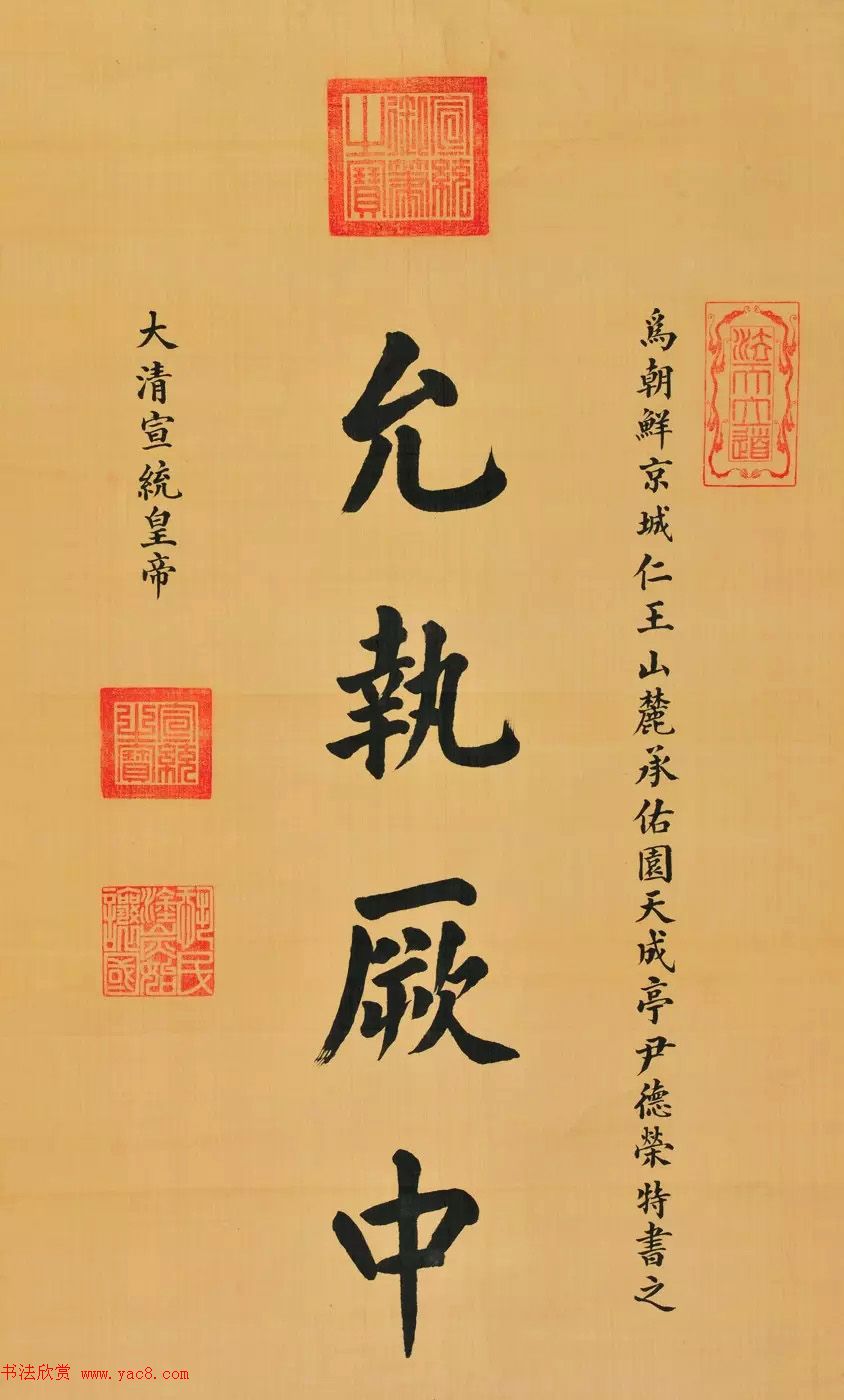 宣統御筆之寶
法天立道
為朝鮮京城仁王山麓承佑園天成亭尹德榮特書之
允執厥中
大清宣統皇帝
宣統之寶
書法欣赏 www.yac8.com